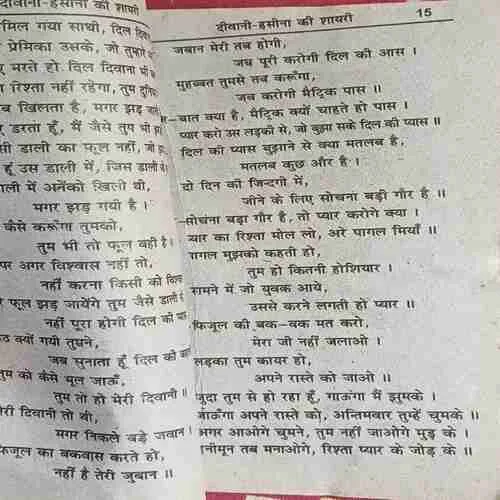 दीवानी-हसीना की शायरी
मिल गया साथी, दिल
प्रेमिका उसके, जो तुम्हारे
भरते हो दिल दिवाना भी
रिश्ता नहीं रहेगा, तुम
खिलता है, मगर झड़
डरता हूँ, मैं जैसे तुम भी
डाली का फूल नहीं, जो
हूं उस डाली में, जिस डाली
में अनेकों खिली थी,
मगर झड़ गयी है ।
कैसे करूँगा तुमको,
तुम भी तो फूल वही है।
पर अगर विश्वास नहीं तो,
नहीं करना किसी को
फूल झड़ जायेंगे तुम जैसे डाली
नहीं पूरा होगी दिल की
क्यों गयी तुमने,
जब सुनाता हूँ दिल की
को कैसे भूल जाऊँ,
तुम तो हो मेरी दिवानी ॥
दिवानी तो थी,
मगर निकले बड़े जवान ।
फिजूल का बकवास करते हो,
नहीं है तेरी जुबान ॥
दीवानी-हसीना की शायरी 15
जबान मेरी तब होगी,
जब पूरी करोगी दिल की आस ।
मुहब्बत तुमसे तब करूँगा,
जब करोगी मैट्रिक पास ॥
बात क्या है, मैट्रिक क्यों चाहते हो पास ।
प्यार करो उस लड़की से, जो बुझा सके दिल की प्यास ॥
दिल की प्यास बुझाने से क्या मतलब है,
मतलब कुछ और है ।
दो दिन की जिन्दगी में,
जीने के लिए सोचना बड़ी गौर है ॥
सोचना बड़ा गौर है, तो प्यार करोगे क्या ।
प्यार का रिश्ता मोल लो, अरे पागल मियाँ ॥
पागल मुझको कहती हो,
तुम हो कितनी होशियार ।
सामने में जो युवक आये,
उससे करने लगती हो प्यार ॥
फिजूल की बक-बक मत करो,
मेरा जी नहीं जलाओ ।
लड़का तुम कायर हो,
अपने रास्ते को जाओ ॥
जुदा तुम से हो रहा हूँ, गाऊंगा मैं झुमके ।
जाऊँगा अपने रास्ते को, अन्तिमवार तुम्हें चुमके ॥
अगर आओगे चुमने, तुम नहीं जाओगे मुड़ के ।
तब मनाओगे, रिश्ता प्यार के जोड़ के ॥